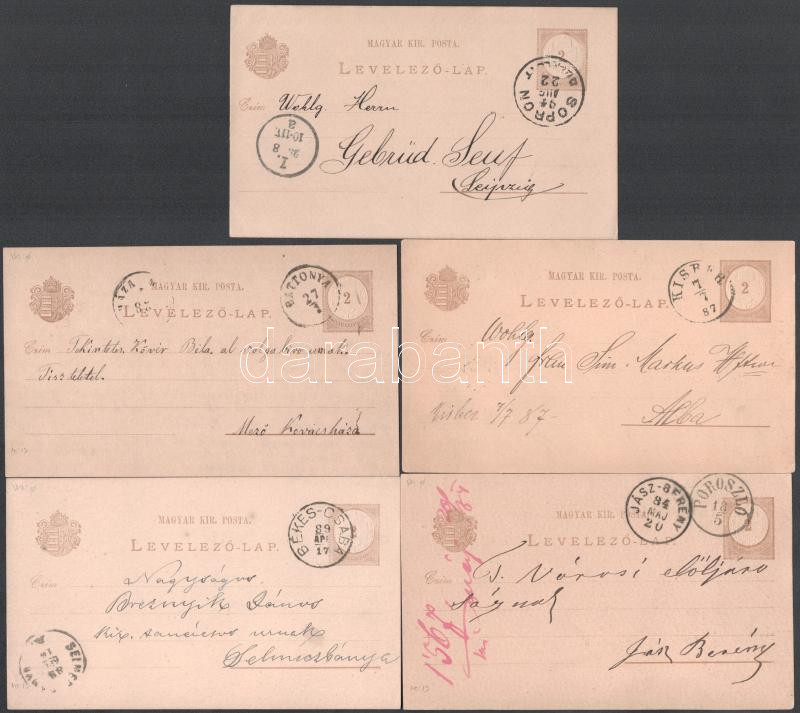 MAGYAR KIR. POSTA.
LEVELEZŐ-LAP.
2
SOPRON
94
AUG
22
Czím Wohlg. Herrn
Gebrüd. Senf
Leipzig
MAGYAR KIR. POSTA.
LEVELEZŐ-LAP.
2
BATTONYA
27
Czím Tekintetes Kövér Béla
Tisztelettel.
Mező Kovácsháza
MAGYAR KIR. POSTA.
LEVELEZŐ-LAP.
2
KISBÉR
87
Czím Wohlg.
Markus
Kisber 7/7 87
Alba
darabanth
MAGYAR KIR. POSTA.
LEVELEZŐ-LAP.
BÉKÉS-CSABA
89
APR
17
Czím Nagyságos
Breznyik János
kir. tanácsos urnak
Selmeczbánya
MAGYAR KIR. POSTA.
LEVELEZŐ-LAP.
2
JÁSZ-BERÉNY
84
MAJ
20
POROSZLÓ
18
5
Czím T. Városi elöljáró
ságnak
Jász Berény